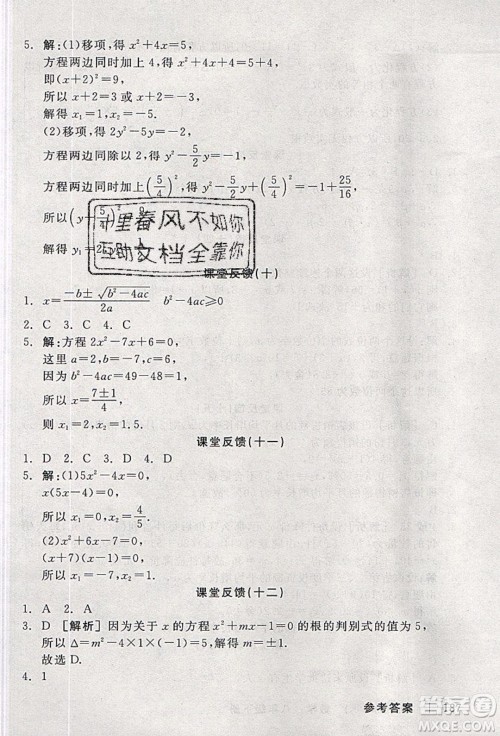 5. 解:(1)移项,得 x²+4x=5,
方程两边同时加上 4,得 x²+4x+4=5+4,
即(x+2)²=9,
所以 x+2=3 或 x+2=-3,
解得 x₁=1,x₂=-5.
(2)移项,得 2y²-5y=-3,
方程两边同除以 2,得 y²-5/2y=-3/2,
方程两边同时加上(5/4)²,得 y²-5/2y+(5/4)²=-3/2+25/16,
所以
千里春风不如你
互助文档全靠你
解得 y₁
课堂反馈(十)
1. x=(-b±√(b²-4ac))/2a b²-4ac≥0
2. C 3. C 4. C
5. 解:方程 2x²-7x+6=0,
这里 a=2,b=-7,c=6,
因为 b²-4ac=49-48=1,
所以 x=(7±1)/4,
则 x₁=2,x₂=1.5.
课堂反馈(十一)
1. D 2. C 3. D 4. D
5. 解:(1)5x²-4x=0,
x(5x-4)=0,
所以 x₁=0,x₂=4/5.
(2)x²+6x-7=0,
(x+7)(x-1)=0,
所以 x₁=-7,x₂=1.
课堂反馈(十二)
1. A 2. A
3. D [解析] 因为关于 x 的方程 x²+mx-1=0 的根的判别式的值为 5,
所以 Δ=m²-4×1×(-1)=5,解得 m=±1.
故选 D.
4. 1
参考答案